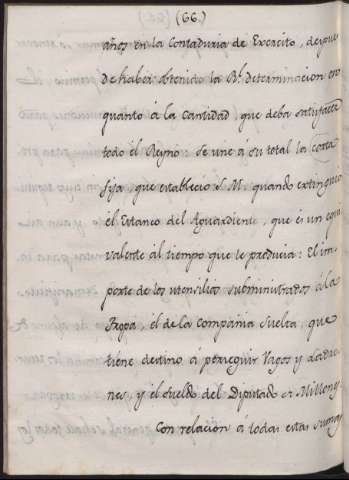 (66.)
años en la Contaduria de Exercito, despues
de haber obtenido la Rl. determinacion en
quanto á la Cantidad, que deba satisfacer
todo el Reyno: se une a su total la Cuota
fija, que establecio S. M. quando extinguió
el Estanco del Aguardiente, que es un equi
valente al tiempo que le producia: El im
porte de los utensilios subministrados á la
Tropa, el de la Compañia Suelta, que
tiene destino a perseguir Vagos y Ladro
nes, y el sueldo del Diputado de Millones.
Con relacion a todas estas sumas